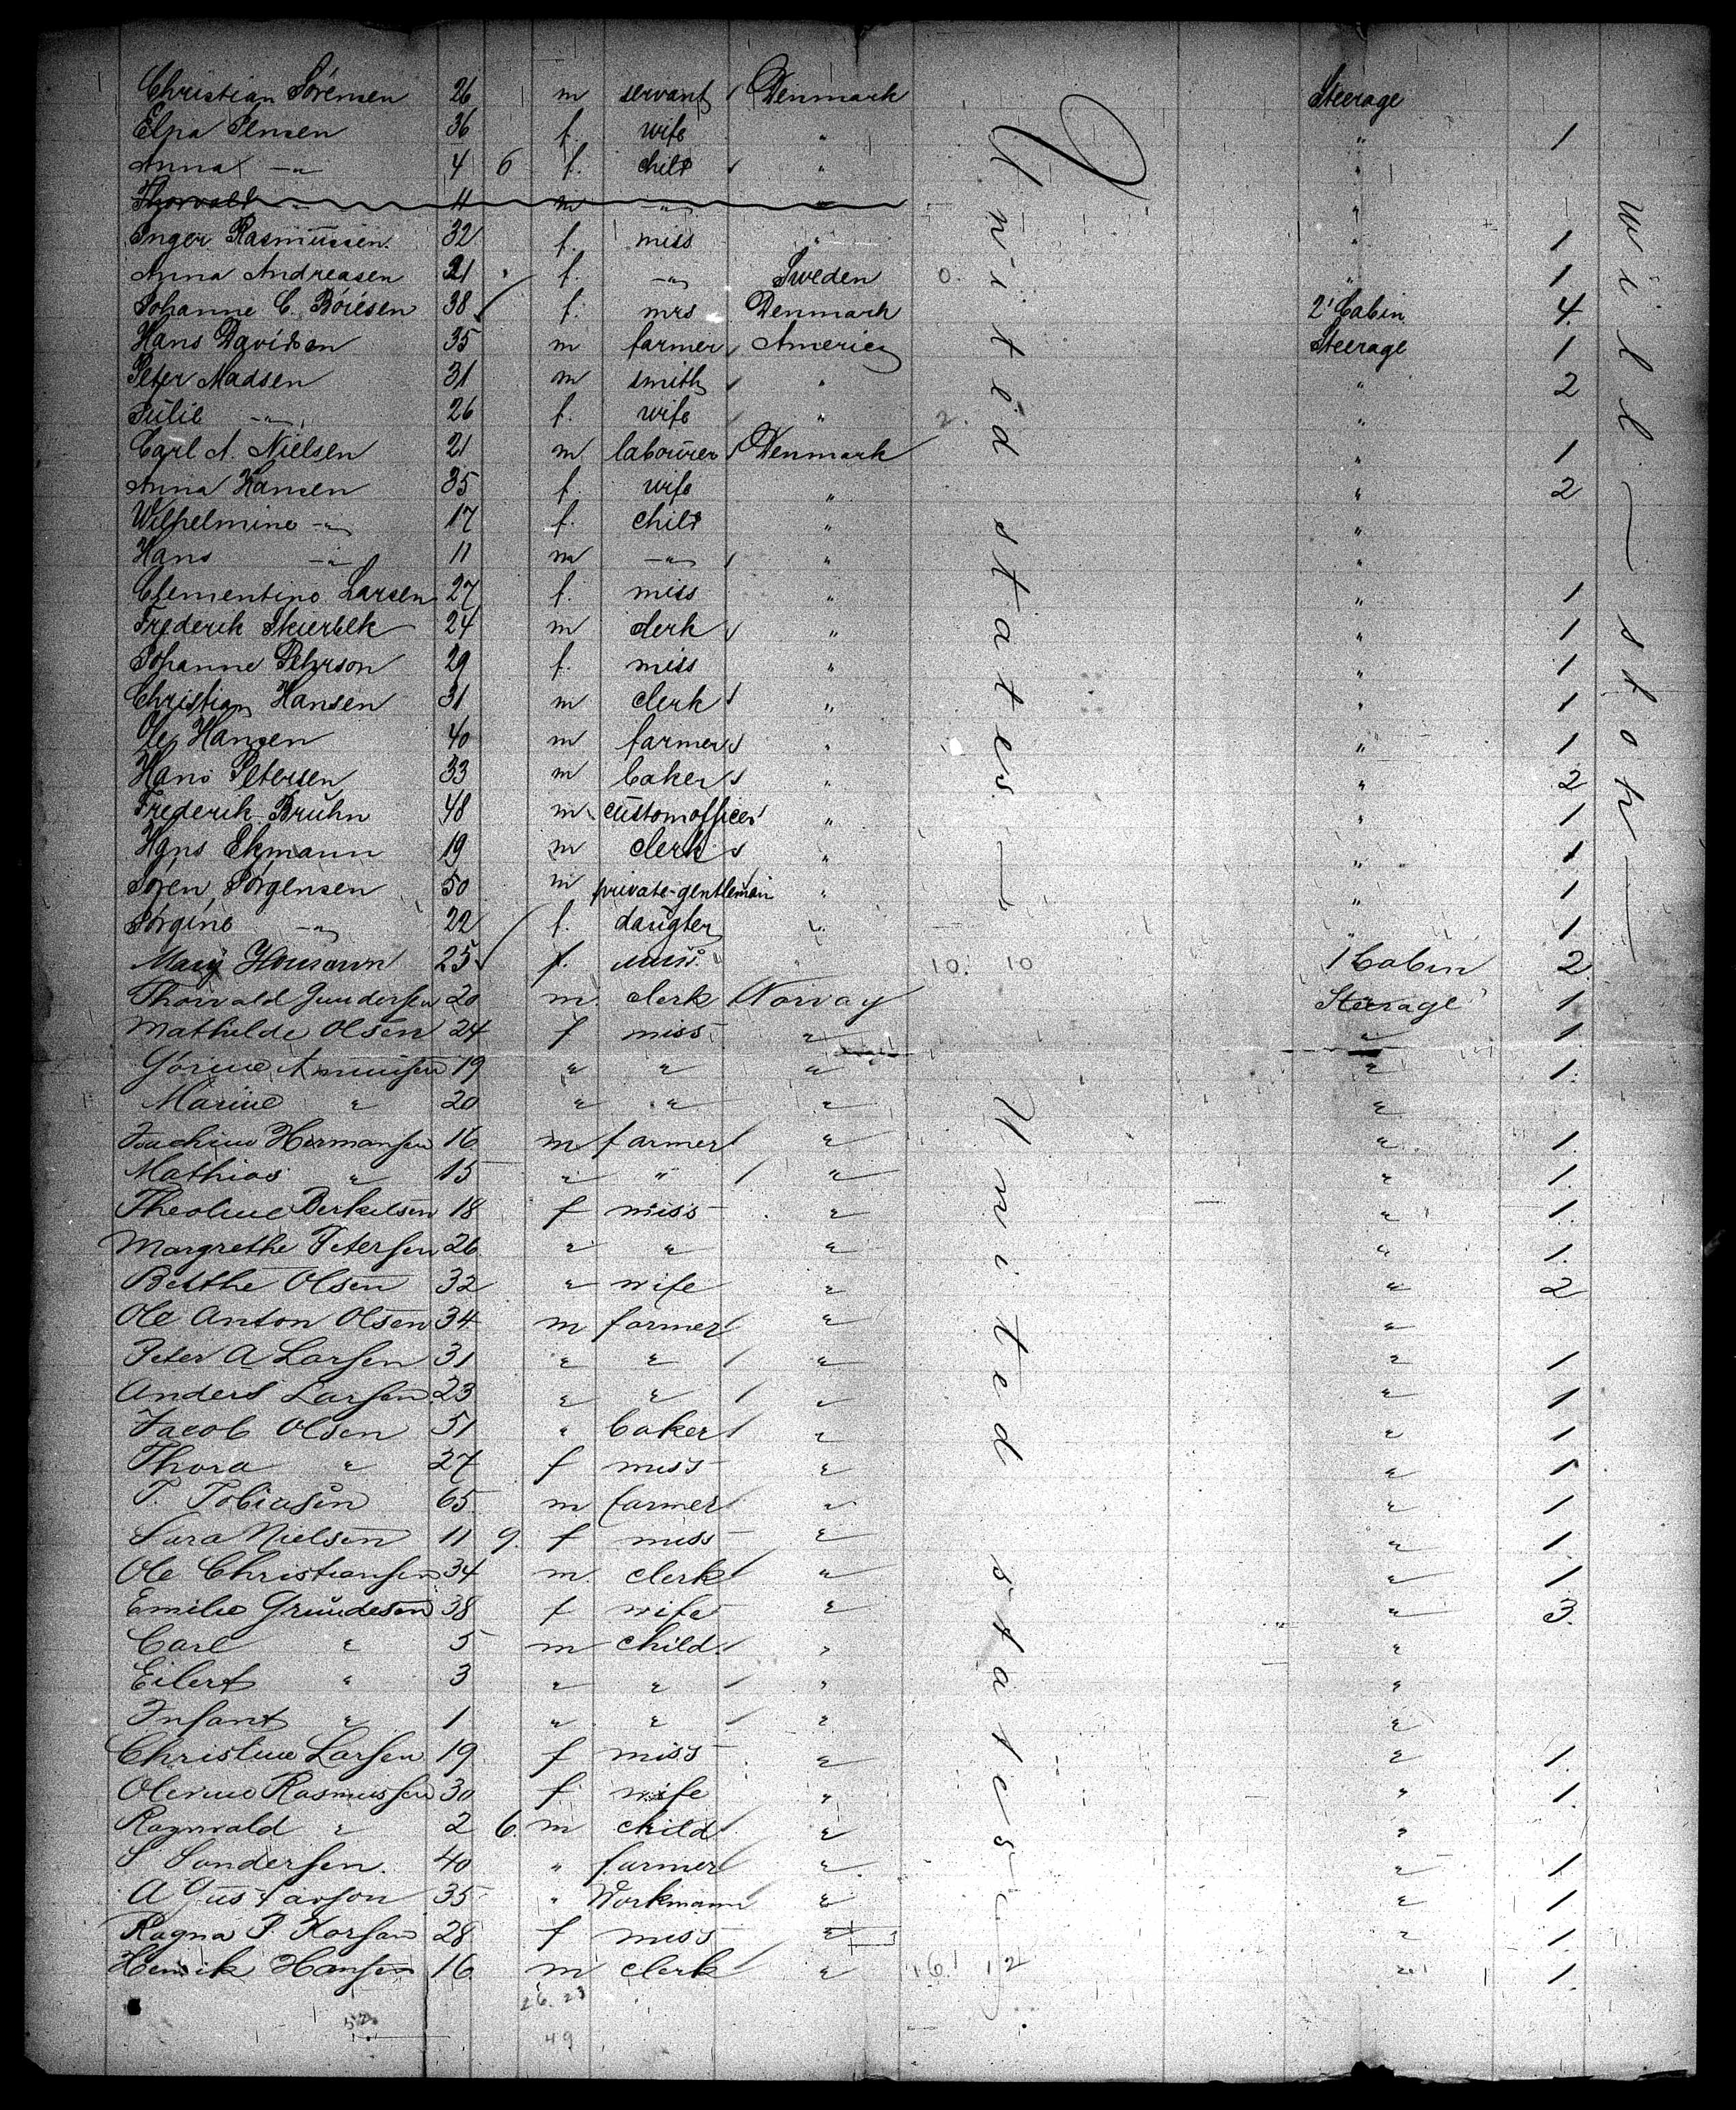 Christian Sörensen 26 m servant Denmark Steerage
Elna Jensen 36 f. wife " " 1
Anna -"- 4 6 f. child " "
Thorvald -"- 11 m -"- " "
Inger Rasmussen 32 f. miss " " 1
Anna Andreasen 21 f. -"- Sweden 0. " 1
Johanne C. Böiesen 38 f. mrs Denmark 2' Cabin 4.
Hans Davidsen 35 m farmer America Steerage 1
Peter Madsen 31 m smith " " 2
Julie -"- 26 f. wife " 2. "
Carl A. Nielsen 21 m labourer Denmark " 1
Anna Hansen 35 f. wife " " 2
Wilhelmine -"- 17 f. child " "
Hans -"- 11 m -"- " "
Clementine Larsen 27 f. miss " " 1
Frederik Skierbek 24 m clerk " " 1
Johanne Pehrson 29 f. miss " " 1
Christian Hansen 31 m clerk " " 1
Ole Hansen 40 m farmer " " 1
Hans Petersen 33 m baker " " 2
Frederik Bruhn 48 m customofficer " " 1
Hans Ekmann 19 m clerk " " 1
Sören Jörgensen 50 m private-gentleman " " 1
Jörgine -"- 22 f. daugter " " 1
Mary 25 f. miss " 10. 10 1 Cabin 2
Thorvald Gundersen 20 m. clerk Norway Steerage 1
Mathilde Olsen 24 f miss " " 1.
19 " " " " 1.
Marine " 20 " " " "
Joachim Hermansen 16 m farmer " " 1.
Mathias " 15 " " " " 1.
Theoline Berkelsen 18 f miss " " 1.
Margrethe Petersen 26 " " " " 1.
Betthe Olsen 32 " wife " " 2
Ole Anton Olsen 34 m farmer " "
Peter A Larsen 31 " " " " 1
Anders Larsen 23 " " " " 1
Jacob Olsen 51 " baker " " 1
Thora " 27 f miss " " 1
T. Tobiasen 65 m farmer " " 1
Sara Nielsen 11 9. f miss " " 1.
Ole Christiansen 34 m. clerk " " 1
Emilie Grundesen 38 f wife " " 3.
Carl " 5 m child " "
Eilert " 3 " " " "
Infant " 1 " " " "
Christine Larsen 19 f miss " " 1.
Oline Rasmussen 30 f wife " " 1.
Ragnvald " 2 6. m child " "
S Sandersen. 40 " farmer " " 1
A Gustavson 35 " Workmann " " 1
Ragna P. Karsen 28 f miss " " 1.
Henrik Hansen 16 m clerk " 16. 12 " 1.
26. 23
52
49
United states —
United states —
will — stop —